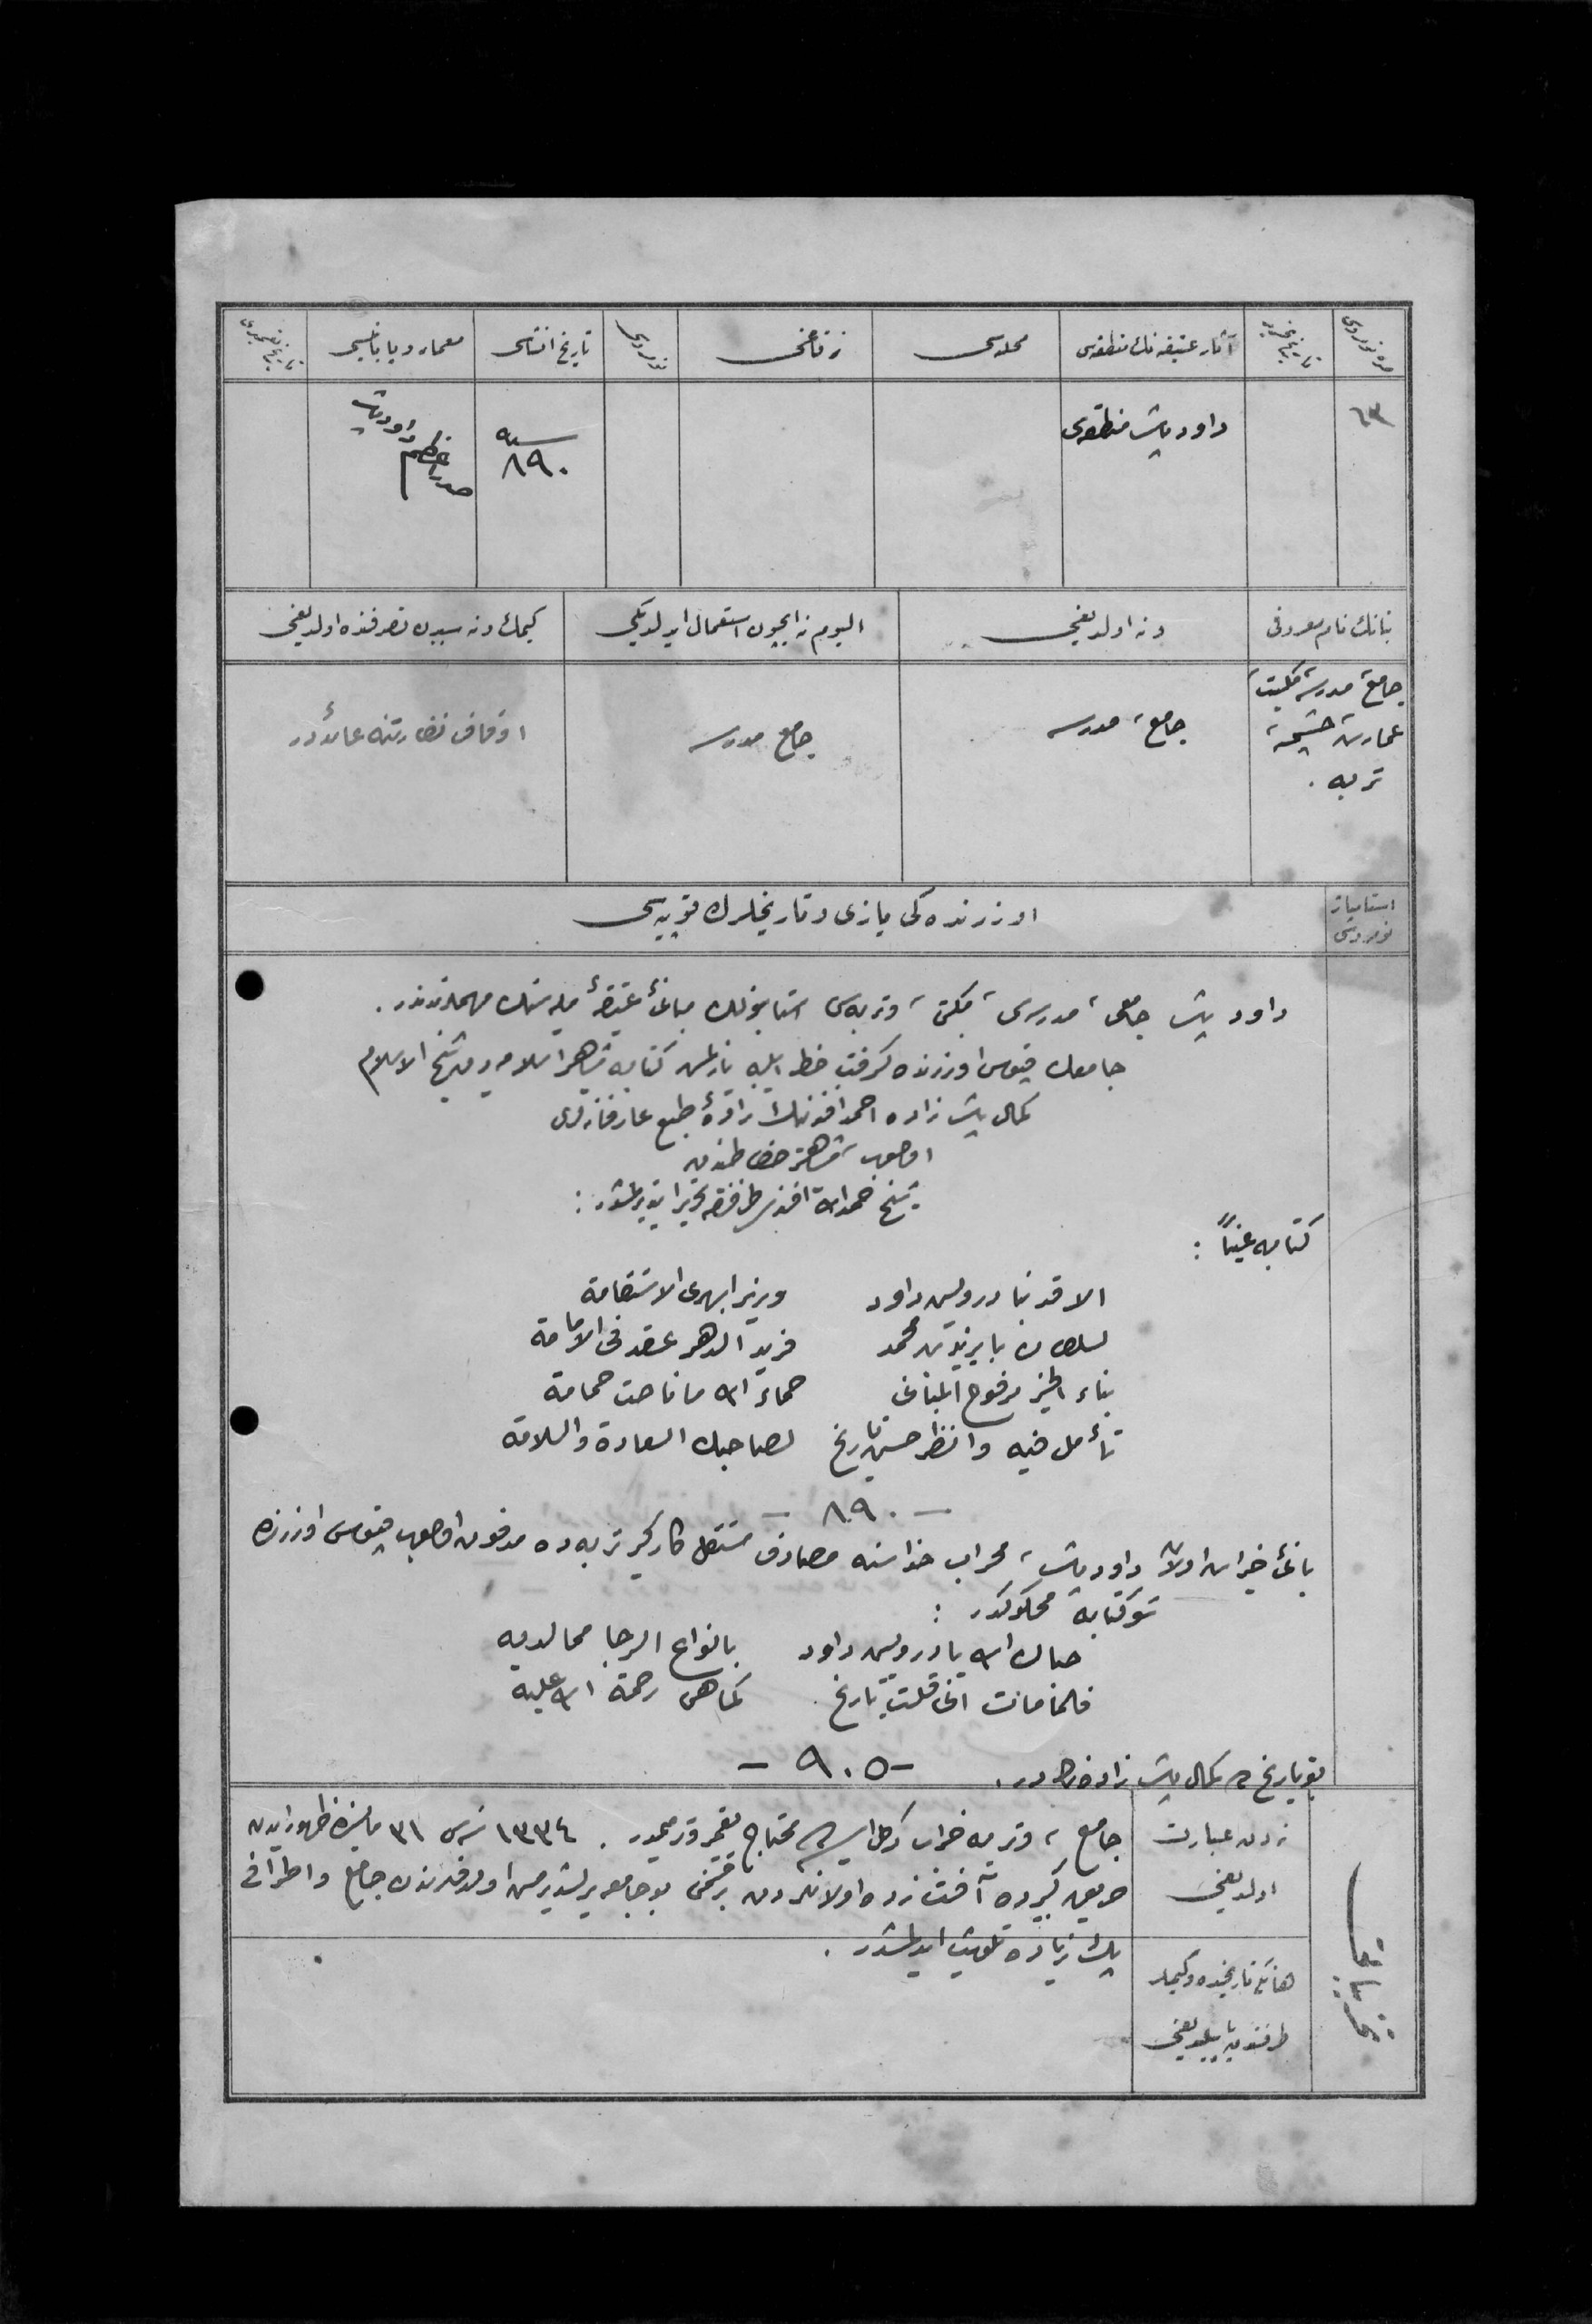 صره نومروسی
تاریخ تحریر
آثار عتیقه نك منطقه سی
محله سی
زقاغی
نومروسی
تاریخ انشاسی
معمار ویا بانیسی
تاریخ تعمیری
٦٣
داود پاشا منطقه سی
سنه ٨٩٠
صدر اعظم داود پاشا
بنانك نام معروفی
و نه اولدیغی
الیوم نه ایچون استعمال ایدلدیکی
کیمك و نه سببدن تصرفنده اولدیغی
جامع، مدرسه، مکتب،
عمارت، چشمه،
تربه .
جامع، مدرسه
جامع مدرسه
اوقاف نظارتنه عائددر
استامپاژ نومروسی
اوزرنده کی یازی و تاریخلرك قوپیه سی
داود پاشا جامعی، مدرسه سی، مکتبی، و تربه سی استانبولك مبانئ عتیقهٔ ملیه سنك مهملرندندر .
جامعك قپوسی اوزرنده کرفت خط ایله یازلمش کتابه مشاهیر اسلامیه دن شیخ الاسلام
کمال پاشا زاده احمد افندینك زادهٔ طبع عارفانه لری
اولوب، مشاهیر خطاطیندن
شیخ حمدالله افندی طرفندن تحریر ایدیلمشدر :
کتابه عیناً :
الا قد بنا درویش داود وزیر ابهدی الاستقامة
لسلطان بایزید بن محمد فرید الدهر عقد فی الامامة
بناء الخیر مرفوع المبانی حماء الله ما ناحت حمامة
تأمل فیه وانظر حسن تاریخ لصاحبك السعادة والسلامة
— ٨٩٠ —
بانئ خیرات اولان داود پاشا، محراب خداسنه مصادف مستقل کارکیر تربه ده مدفون اولوب قپوسی اوزرنده
شو کتابه محکوکدر :
حباك الله یا درویش داود بانواع الرجا مما لدیه
فلما مات انی قلت تاریخ کماهی رحمة الله علیه
بو تاریخ ده کمال پاشا زاده نکدر . — ٩٠٥ —
تخریبات
نه دن عبارت
اولدیغی
جامع، و تربه خراب دکل ایسه ده محتاج تعمیر و ترمیمدر . ١٣٣٤ سنه سی ٣١ مایسنده ظهور ایدن
حریق کبیرده آفت زده اولانلردن بر قسمی بو جامعه یرلشدیرلمش اولدقلرندن جامع و اطرافی
پك زیاده تلویث ایدلمشدر .
هانکی تاریخده و کیملر
طرفندن یاپیلدیغی